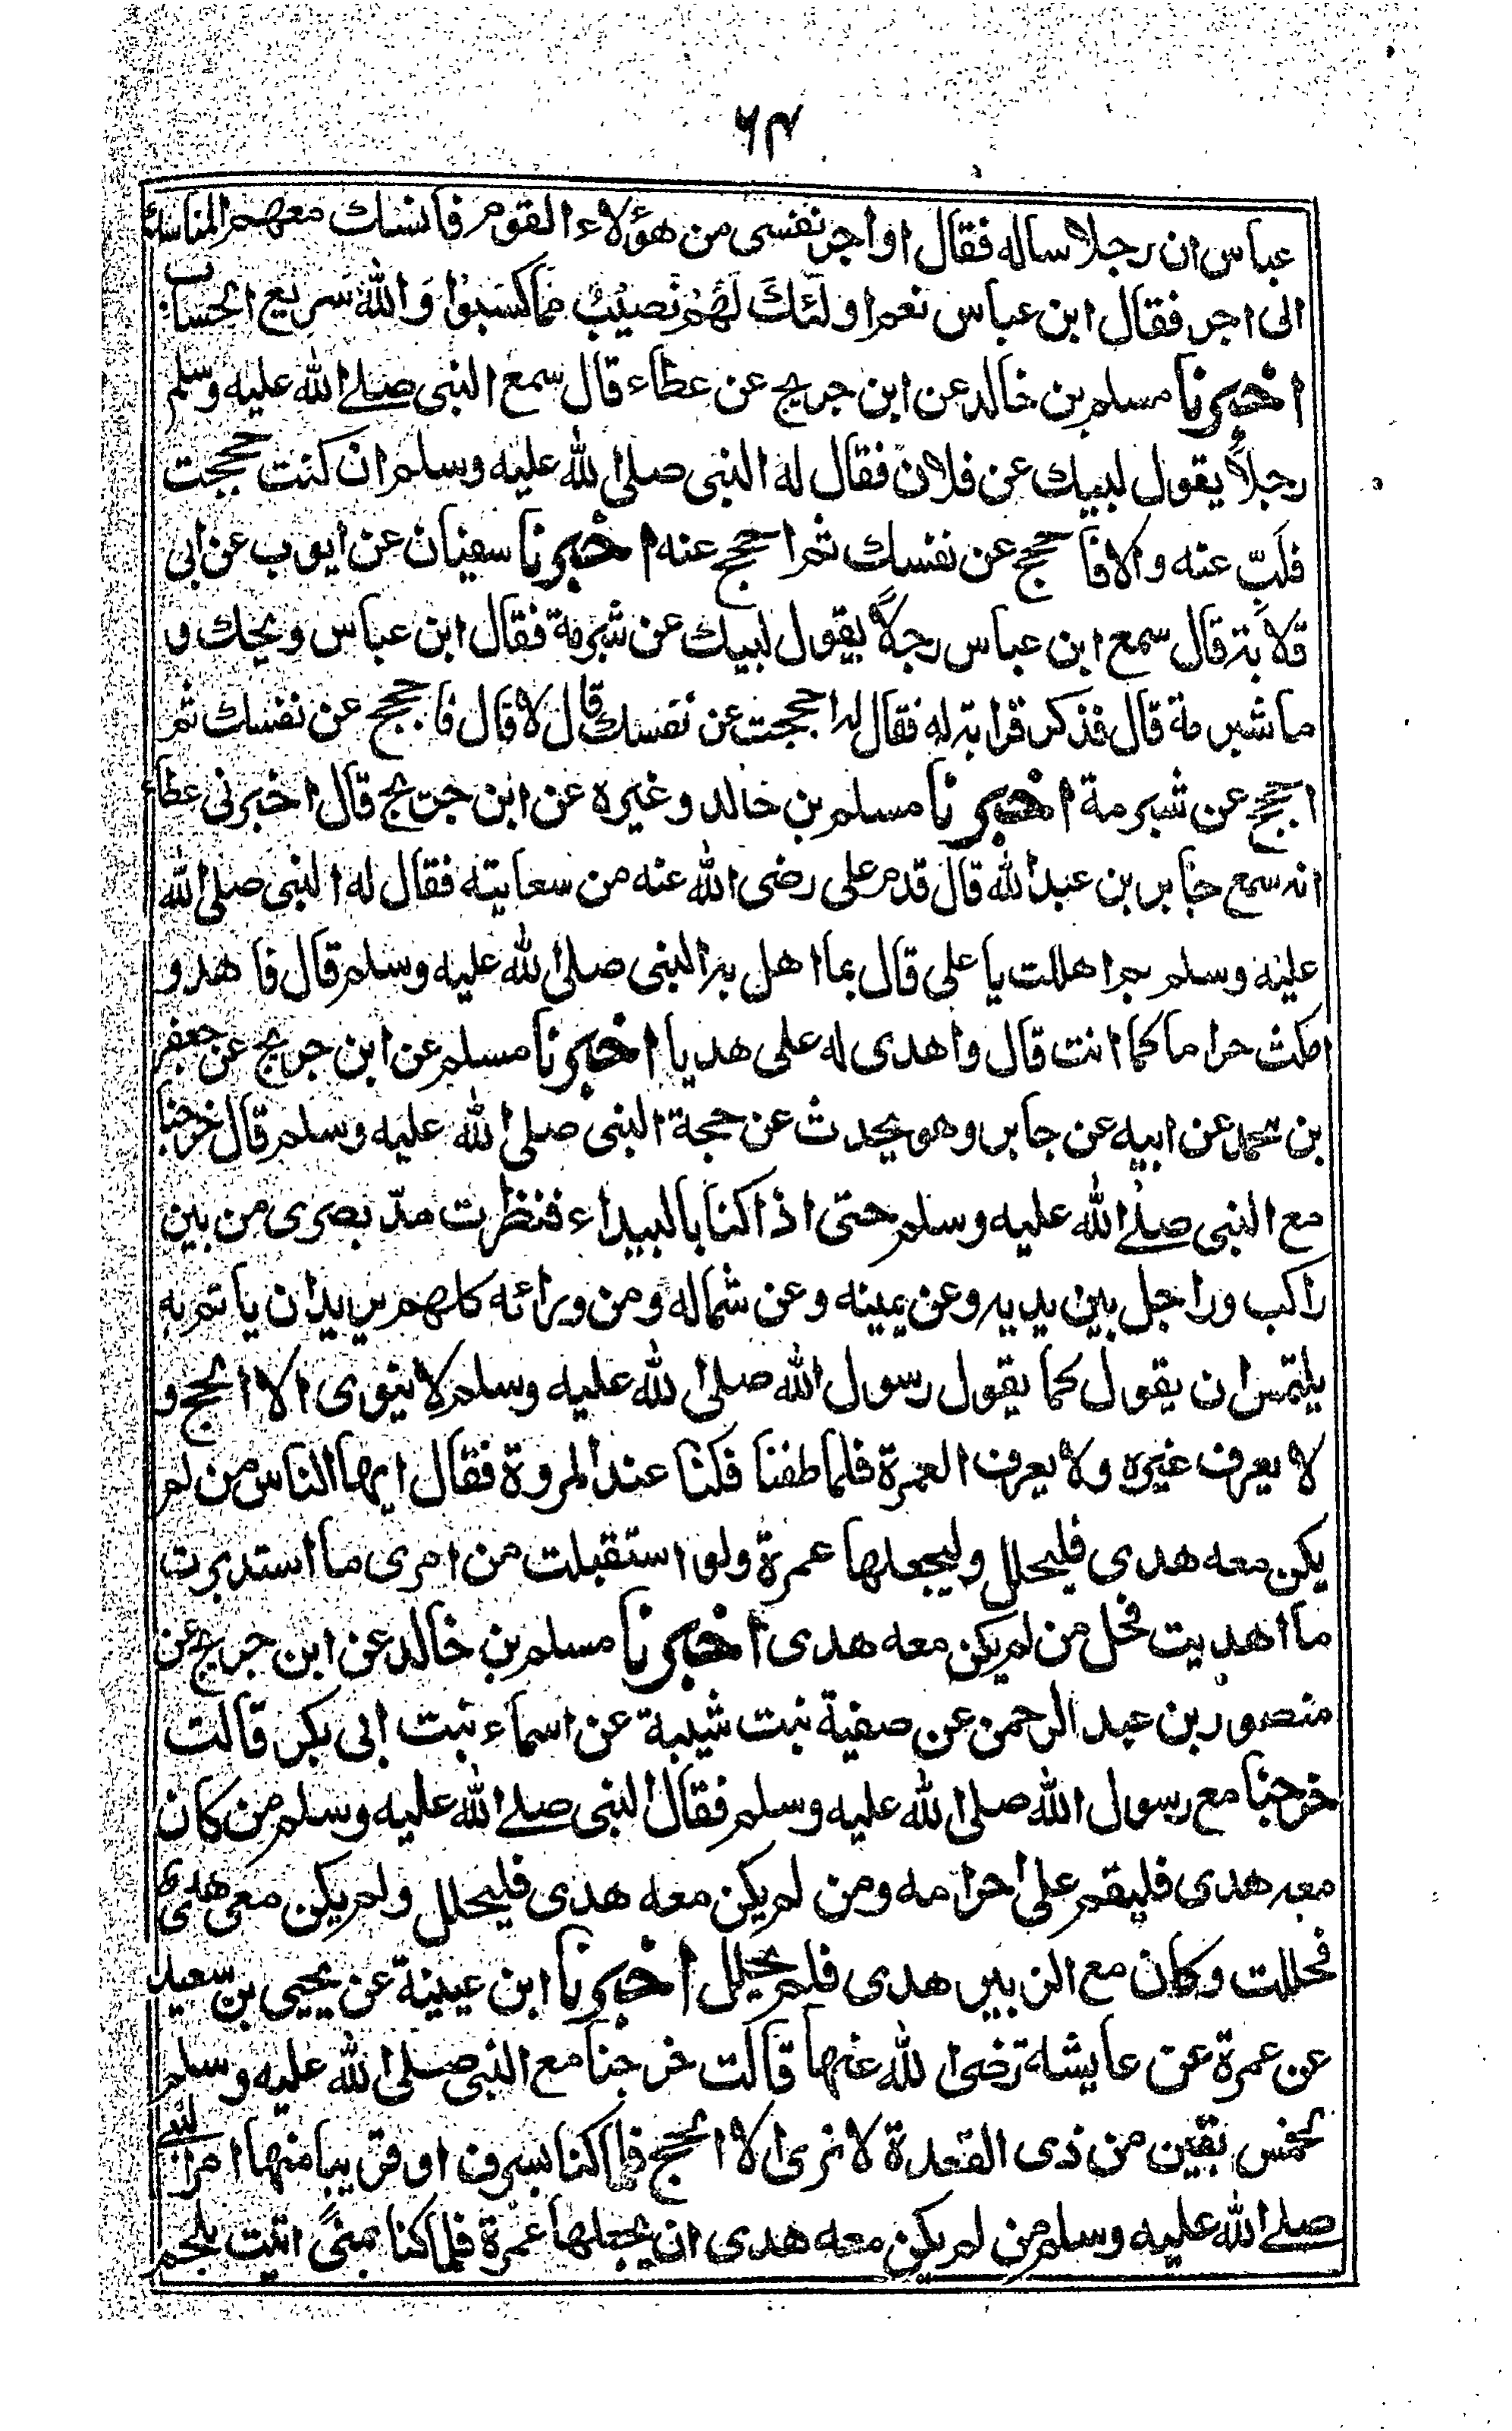 ٦٣
عباس ان رجلا ساله فقال اواجر نفسى من هؤلاء القوم فانسك معهم المناسك
الى اجر فقال ابن عباس نعم اولئك لَهُمْ نَصيْبٌ مما كسَبوْا وَاللهُ سَريع الحساب
اخبرنا مسلم بن خالد عن ابن جريج عن عطاء قال سمع النبى صلے الله عليه وسلم
رجلاً يقول لبيك عن فلان فقال له النبى صلى الله عليه وسلم ان كنت حججت
فلَبّ عنه والا فاحجج عن نفسك ثم احجج عنه اخبرنا سفيان عن ايوب عن ابى
قلابة قال سمع ابن عباس رجلاً يقول لبيك عن شبرمة فقال ابن عباس ويحك و
ما شبرمة قال فذكر قرابة له فقال له احججت عن نفسك قال لا قال فاحجج عن نفسك ثم
احجج عن شبرمة اخبرنا مسلم بن خالد وغيره عن ابن جريج قال اخبرنى عطاء
انه سمع جابر بن عبد الله قال قدم على رضى الله عنه من سعايته فقال له النبى صلى الله
عليه وسلم بم اهللت يا على قال بما اهل به النبى صلى الله عليه وسلم قال فاهد و
امكث حراما كما انت قال واهدى له على هديا اخبرنا مسلم عن ابن جريج عن جعفر
بن محمد عن ابيه عن جابر وهو يحدث عن حجة النبى صلى الله عليه وسلم قال خرجنا
مع النبى صلے الله عليه وسلم حتى اذا كنا بالبيداء فنظرت مدّ بصرى من بين
راكب وراجل بين يديه وعن يمينه وعن شماله ومن ورائه كلهم يريدان ياتم به
يلتمس ان يقول كما يقول رسول الله صلى الله عليه وسلم لا ينوى الا الحج و
لا يعرف غيره ولا يعرف العمرة فلما طفنا فكنا عند المروة فقال ايها الناس من لم
يكن معه هدى فليحلل وليجعلها عمرة ولو استقبلت من امرى ما استدبرت
ما اهديت فحل من لم يكن معه هدى اخبرنا مسلم بن خالد عن ابن جريج عن
منصور بن عبد الرحمن عن صفية بنت شيبة عن اسماء بنت ابى بكر قالت
خرجنا مع رسول الله صلى الله عليه وسلم فقال النبى صلے الله عليه وسلم من كان
معه هدى فليقم على احرامه ومن لم يكن معه هدى فليحلل ولم يكن معى هدى
فحللت وكان مع الزبير هدى فلم يحلل اخبرنا ابن عيينة عن يحيى بن سعيد
عن عمرة عن عايشة رضى الله عنها قالت خرجنا مع النبى صلى الله عليه وسلم
لخمس بقين من ذى القعدة لا نرى الا الحج فلما كنا بسرف او قريبا منها امر النبى
صلے الله عليه وسلم من لم يكن معه هدى ان يجعلها عمرة فلما كنا بمنًى اتيت بلحم